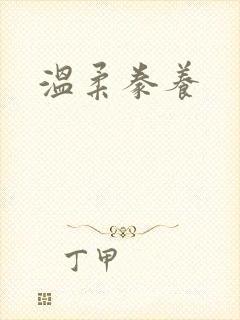 溫柔豢養
丁甲